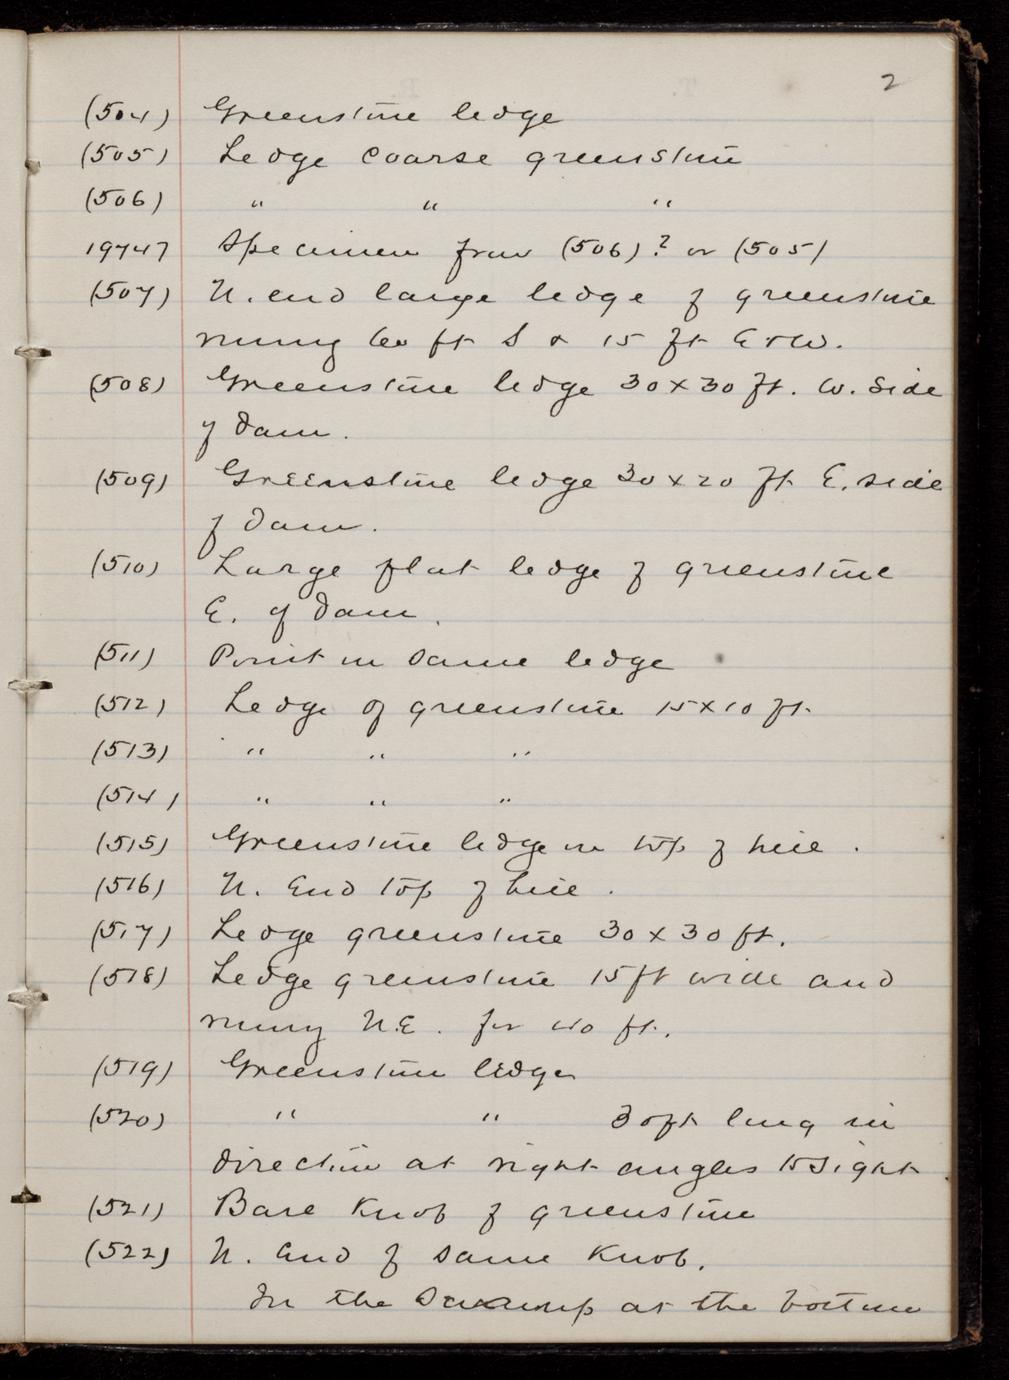 2
(504) Greenstone ledge
(505) Ledge coarse greenstone
(506) " " "
19747 Specimen from (506)? or (505)
(507) N. end large ledge of greenstone
runng 60 ft S & 15 ft E & W.
(508) Greenstone ledge 30 x 30 ft. W. side
of dam.
(509) Greenstone ledge 30 x 20 ft E. side
of dam.
(510) Large flat ledge of greenstone
E. of dam.
(511) Point in same ledge
(512) Ledge of greenstone 15 x 10 ft.
(513) " " "
(514) " " "
(515) Greenstone ledge on top of hill.
(516) N. End top of hill.
(517) Ledge greenstone 30 x 30 ft.
(518) Ledge greenstone 15 ft wide and
runng N.E. for 40 ft.
(519) Greenstone ledge
(520) " " 30 ft long in
direction at right angles to sight
(521) Bare Knob of greenstone
(522) N. End of same Knob.
In the swamp at the bottom